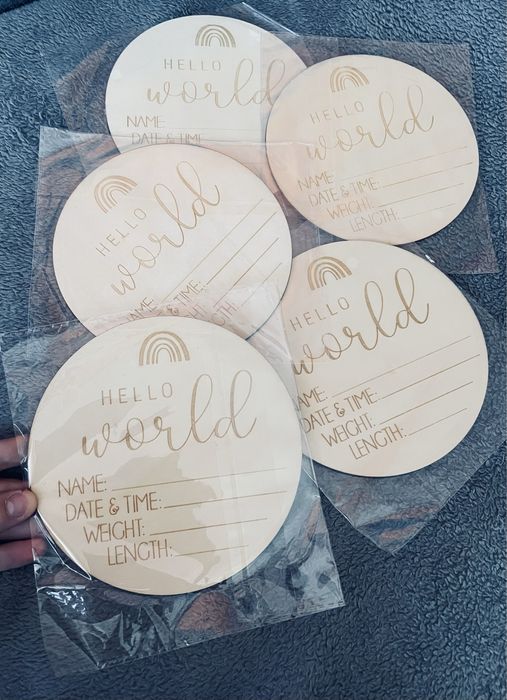 HELLO
world
NAME:
DATE & TIME
HELLO
world
NAME:
DATE & TIME:
WEIGHT:
LENGTH:
HELLO
world
NAME:
& TIME:
LENGTH:
HELLO
world
NAME:
DATE & TIME:
WEIGHT:
LENGTH:
HELLO
world
NAME:
DATE & TIME:
WEIGHT:
LENGTH: